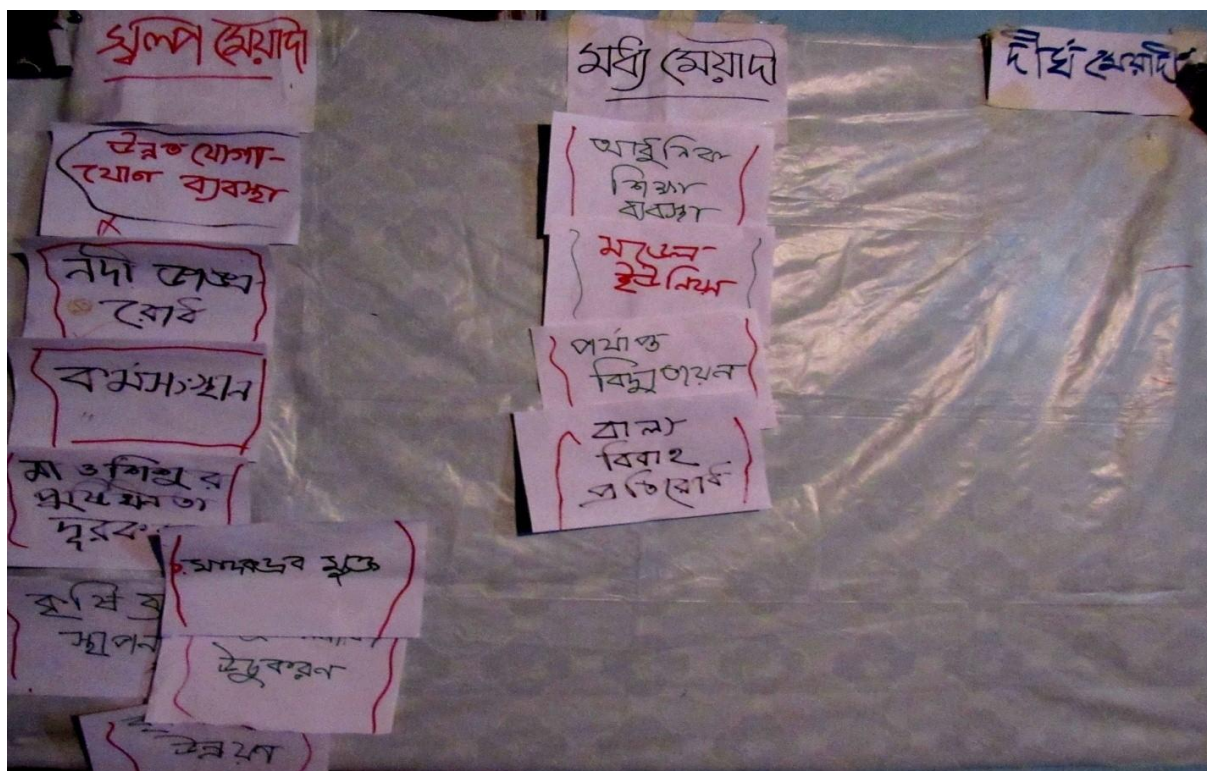 স্বল্প মেয়াদী
উন্নত যোগা-
যোগ ব্যবস্থা
নদী ভাঙ্গন
রোধ
কর্মসংস্থান
মা ও শিশুর
দূরক
কৃষি
স্থাপন
মাদকদ্রব মুক্ত
উঁচুকরণ
উন্নয়ণ
মধ্য মেয়াদী
আধুনিক
শিক্ষা
ব্যবস্থা
মডেল
ইউনিয়ন
পর্যাপ্ত
বিদ্যুতায়ন
বাল্য
বিবাহ
প্রতিরোধ
দীর্ঘ মেয়াদী